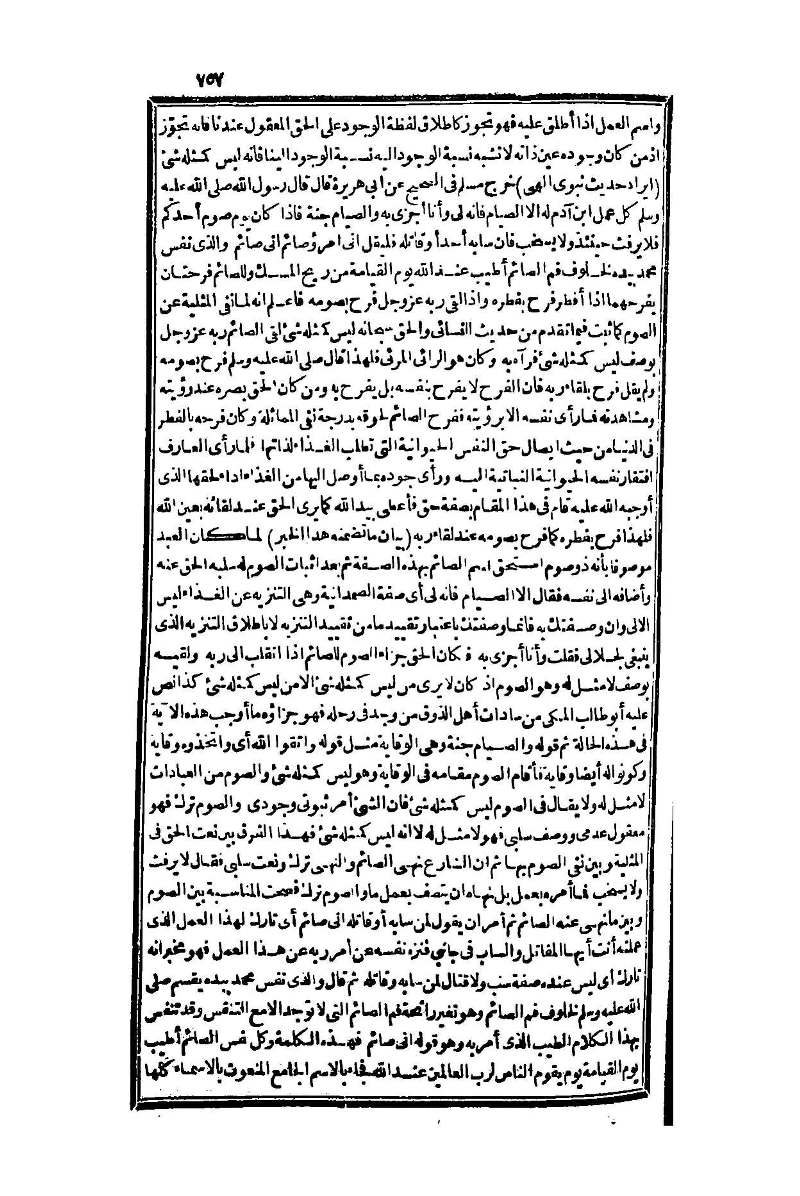 ٧٥٧
واسم العمل اذا أطلق عليه فهو تجوز كاطلاق لفظة الوجود على الحق المعقول عندنا فانه تجوّز
اذ من كان وجوده عين ذاته لا تشبه نسبة الوجود اليه نسبة الوجود الينا فانه ليس كمثله شئ
(ايراد حديث نبوى الهى) خرج مسلم فى الصحيح عن ابى هريرة قال قال رسول الله صلى الله عليه
وسلم كل عمل ابن آدم له الا الصيام فانه لى وأنا أجزى به والصيام جنة فاذا كان يوم صوم أحدكم
فلا يرفث حينئذ ولا يسخب فان سابه أحد أو قاتله فليقل انى امرؤ صائم انى صائم والذى نفس
محمد بيده لخلوف فم الصائم أطيب عند الله يوم القيامة من ريح المسك وللصائم فرحتان
يفرحهما اذا أفطر فرح بفطره واذا لقى ربه عز وجل فرح بصومه فاعلم انه لما نفى المثلية عن
الصوم كما ثبت فيما تقدم من حديث النسائى والحق سبحانه ليس كمثله شئ لقى الصائم ربه عز وجل
بوصف ليس كمثله شئ فرآه به وكان هو الرائى المرئى فلهذا قال صلى الله عليه وسلم فرح بصومه
ولم يقل فرح بلقاء ربه فان الفرح لا يفرح بنفسه بل يفرح به ومن كان الحق بصره عند رؤيته
ومشاهدته فما رأى نفسه الا برؤيته ففرح الصائم لحوقه بدرجة نفى المماثلة وكان فرحه بالفطر
فى الدنيا من حيث ايصال حق النفس الحيوانية التى تطلب الغذاء لذاتها فلما رأى العارف
افتقار نفسه الحيوانية النباتية اليه ورأى جوده بما أوصل اليها من الغذاء اداء لحقها الذى
أوجبه الله عليه قام فى هذا المقام بصفة حق فأعطى بيد الله كما يرى الحق عند لقائه بعين الله
فلهذا فرح بفطره كما فرح بصومه عند لقاء ربه (بيان ما تضمنه هذا الخبر) لما كان العبد
موصوفا بأنه ذو صوم استحق اسم الصائم بهذه الصفة ثم بعد اثبات الصوم له سلبه الحق عنه
وأضافه الى نفسه فقال الا الصيام فانه لى أى صفة الصمدانية وهى التنزيه عن الغذاء ليس
الا لى وان وصفتك به فانما وصفتك باعتبار تقييد ما من تقييد التنزيه لا باطلاق التنزيه الذى
ينبغى لجلالى فقلت وأنا أجزى به فكان الحق جزاء الصوم للصائم اذا انقلب الى ربه ولقيه
بوصف لا مثل له وهو الصوم اذ كان لا يرى من ليس كمثله شئ الا من ليس كمثله شئ كذا نص
عليه أبو طالب المكى من سادات أهل الذوق من وجد فى رحله فهو جزاؤه ما أوجب هذه الآية
فى هذه الحالة ثم قوله والصيام جنة وهى الوقاية مثل قوله واتقوا الله أى واتخذوه وقاية
وكونوا له أيضا وقاية فأقام الصوم مقامه فى الوقاية وهو ليس كمثله شئ والصوم من العبادات
لا مثل له ولا يقال فى الصوم ليس كمثله شئ فان الشئ أمر ثبوتى وجودى والصوم ترك فهو
معقول عدمى ووصف سلبى فهو لا مثل له لا انه ليس كمثله شئ فهذا الفرق بين نعت الحق فى
المثلية وبين نفى الصوم بها ثم ان الشارع نهى الصائم والنهى ترك ونعت سلبى فقال لا يرفث
ولا يسخب فما أمره بعمل بل نهاه ان يتصف بعمل ما والصوم ترك فصحت المناسبة بين الصوم
وبين ما نهى عنه الصائم ثم أمر ان يقول لمن سابه أو قاتله انى صائم أى تارك لهذا العمل الذى
عملته أنت أيها المقاتل والساب فى جانبى فنزه نفسه عن أمر ربه عن هذا العمل فهو مخبر انه
تارك أى ليس عنده صفة سب ولا قتال لمن سابه وقاتله ثم قال والذى نفس محمد بيده يقسم صلى
الله عليه وسلم لخلوف فم الصائم وهو تغير رائحة فم الصائم التى لا توجد الا مع التنفس وقد تنفس
بهذا الكلام الطيب الذى أمر به وهو قوله انى صائم فهذه الكلمة وكل نفس الصائم أطيب
يوم القيامة يوم يقوم الناس لرب العالمين عند الله فجاء بالاسم الجامع المنعوت بالاسماء كلها